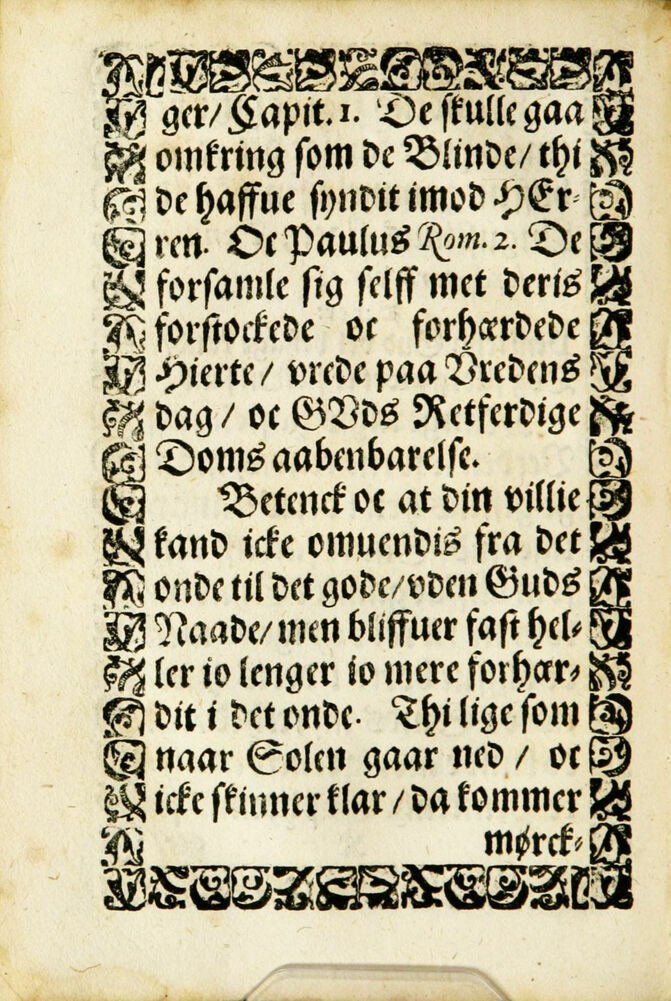 ger/ Capit. 1. De skulle gaa
omkring som de Blinde/ thi
de haffue syndit imod HEr-
ren. Oc Paulus Rom. 2. De
forsamle sig selff met deris
forstockede oc forhærdede
Hierte/ vrede paa Vredens
dag/ oc GVds Retferdige
Doms aabenbarelse.
Betenck oc at din villie
kand icke omuendis fra det
onde til det gode/ vden Guds
Naade/ men bliffuer fast hel-
ler io lenger io mere forhær-
dit i det onde. Thi lige som
naar Solen gaar ned / oc
icke skinner klar / da kommer
mørck-